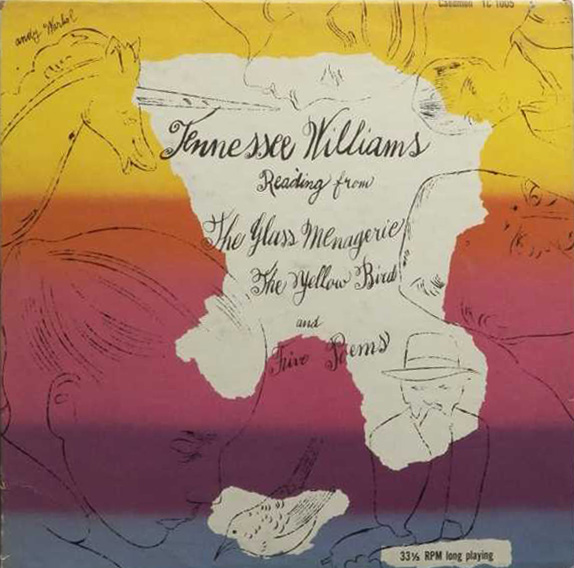 Caedmon TC 1005
andy Warhol
Tennessee Williams
Reading from
The Glass Menagerie
The Yellow Bird
and
Five Poems
33⅓ RPM long playing